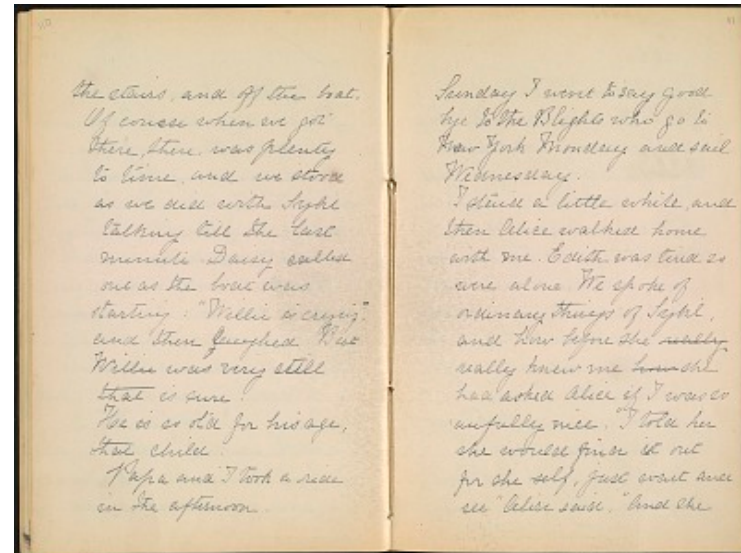 the stairs, and off the boat.
Of course when we got
there, there was plenty
to time, and we stood
as we did with Sybil
talking till the last
minute. Daisy called
out as the boat was
starting: "Willie is crying",
and then laughed. But
Willie was very still
that is sure.
He is so old for his age,
that child.
Papa and I took a ride
in the afternoon.
91
Sunday I went to say good
bye to the Blights who go to
New York Monday and sail
Wednesday.
I stayed a little while, and
then Alice walked home
with me. Edith was tired so
were alone. We spoke of
ordinary things of Sybil,
and how before she really
really knew me how she
had asked Alice if I was so
awfully nice. "I told her
she would find it out
for she self, just wait and
see" Alice said, "And she